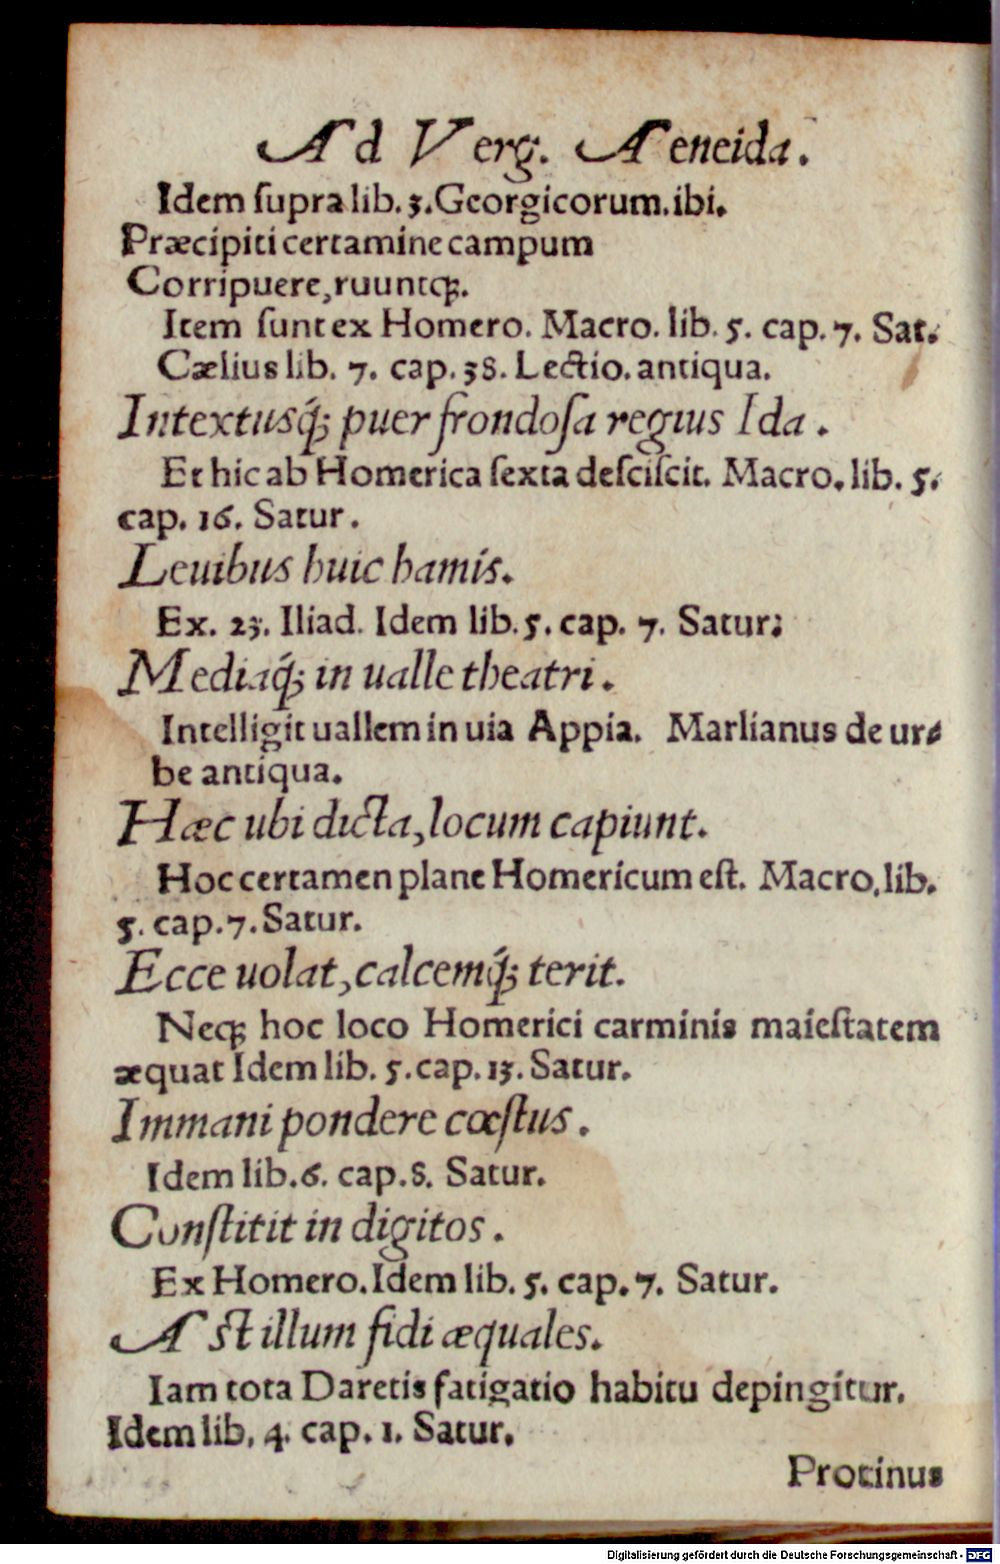 Ad Verg. Aeneida.
Idem ſupra lib. 3. Georgicorum. ibi.
Præcipiti certamine campum
Corripuere, ruuntq́;.
Item ſunt ex Homero. Macro. lib. 5. cap. 7. Sat.
Cælius lib. 7. cap. 38. Lectio. antiqua.
Intextusq́; puer frondoſa regius Ida.
Et hic ab Homerica ſexta deſciſcit. Macro. lib. 5.
cap. 16. Satur.
Leuibus huic hamis.
Ex. 23. Iliad. Idem lib. 5. cap. 7. Satur.
Mediaq́; in ualle theatri.
Intelligit uallem in uia Appia. Marlianus de ur-
be antiqua.
Hæc ubi dicta, locum capiunt.
Hoc certamen plane Homericum eſt. Macro. lib.
5. cap. 7. Satur.
Ecce uolat, calcemq́; terit.
Neq; hoc loco Homerici carminis maieſtatem
æquat Idem lib. 5. cap. 13. Satur.
Immani pondere cœſtus.
Idem lib. 6. cap. 8. Satur.
Conſtitit in digitos.
Ex Homero. Idem lib. 5. cap. 7. Satur.
Aſt illum fidi æquales.
Iam tota Daretis fatigatio habitu depingitur.
Idem lib. 4. cap. 1. Satur.
Protinus
Digitalisierung gefördert durch die Deutsche Forschungsgemeinschaft - DFG